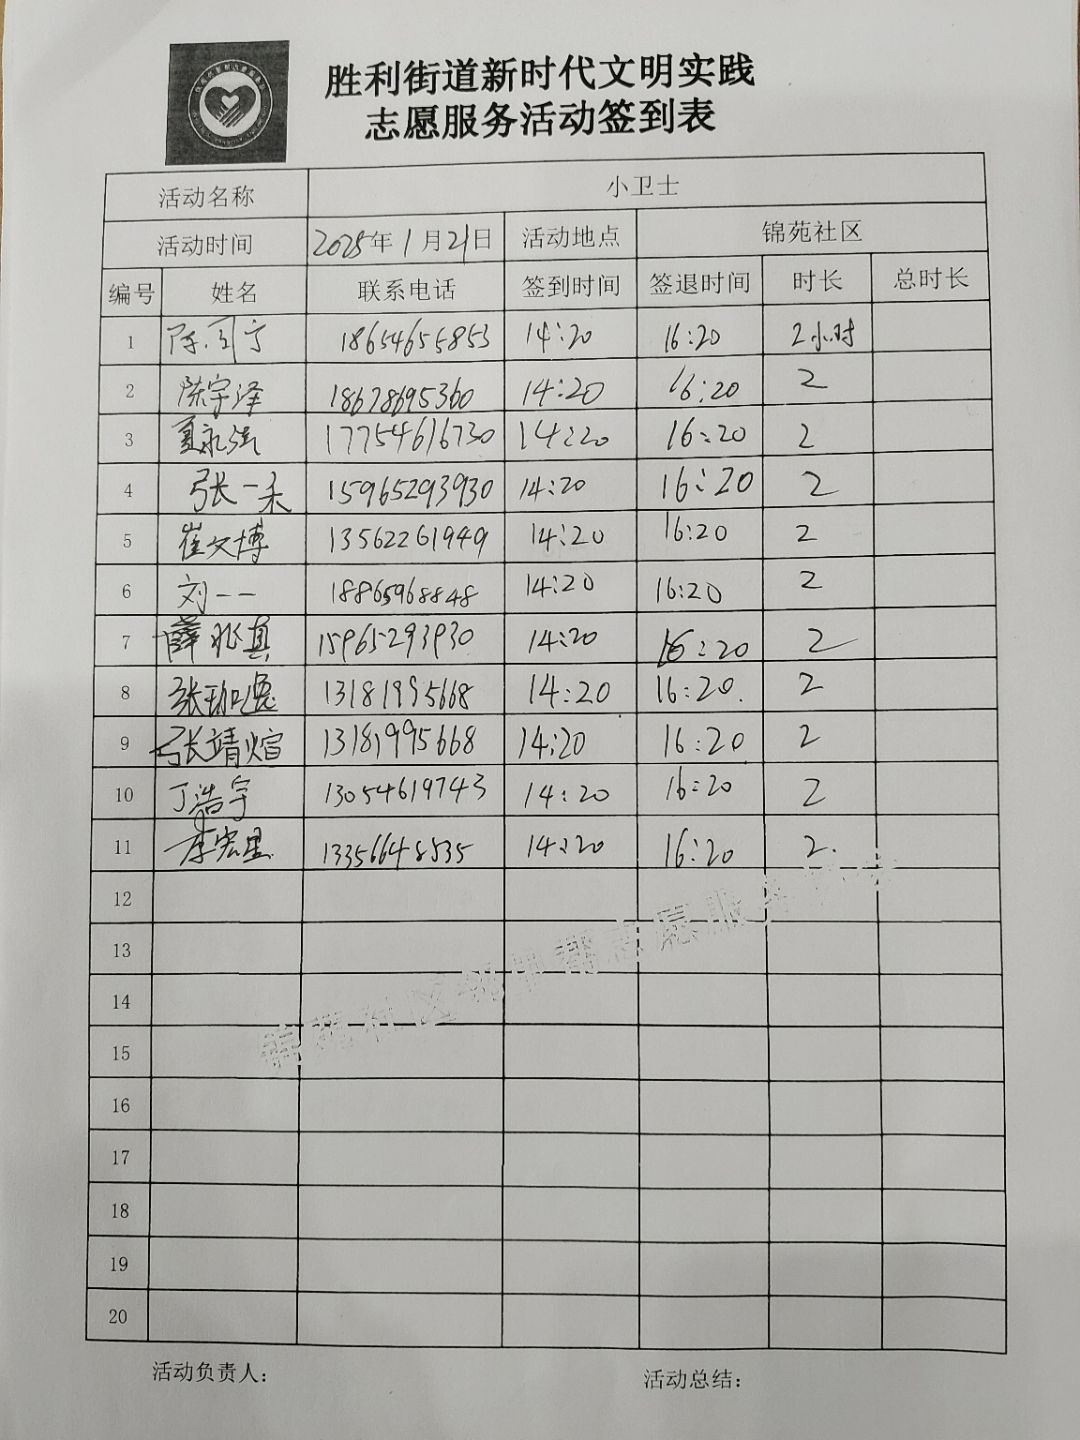 胜利街道新时代文明实践
志愿服务活动签到表
活动名称 小卫士
活动时间 2025年1月21日 活动地点 锦苑社区
编号 姓名 联系电话 签到时间 签退时间 时长 总时长
1 陈 18654655853 14:20 16:20 2小时
2 陈宇泽 18678695360 14:20 16:20 2
3 夏永强 17754616730 14:20 16:20 2
4 张一禾 15965293930 14:20 16:20 2
5 崔文博 13562261949 14:20 16:20 2
6 刘一一 18865968848 14:20 16:20 2
7 薛兆真 15965293930 14:20 16:20 2
8 张珈 13181995668 14:20 16:20. 2
9 张靖煊 13181995668 14:20 16:20 2
10 丁浩宇 13054619743 14:20 16:20 2
11 李宏 13356648535 14:20 16:20 2.
12
13
14
15
16
17
18
19
20
活动负责人: 活动总结: